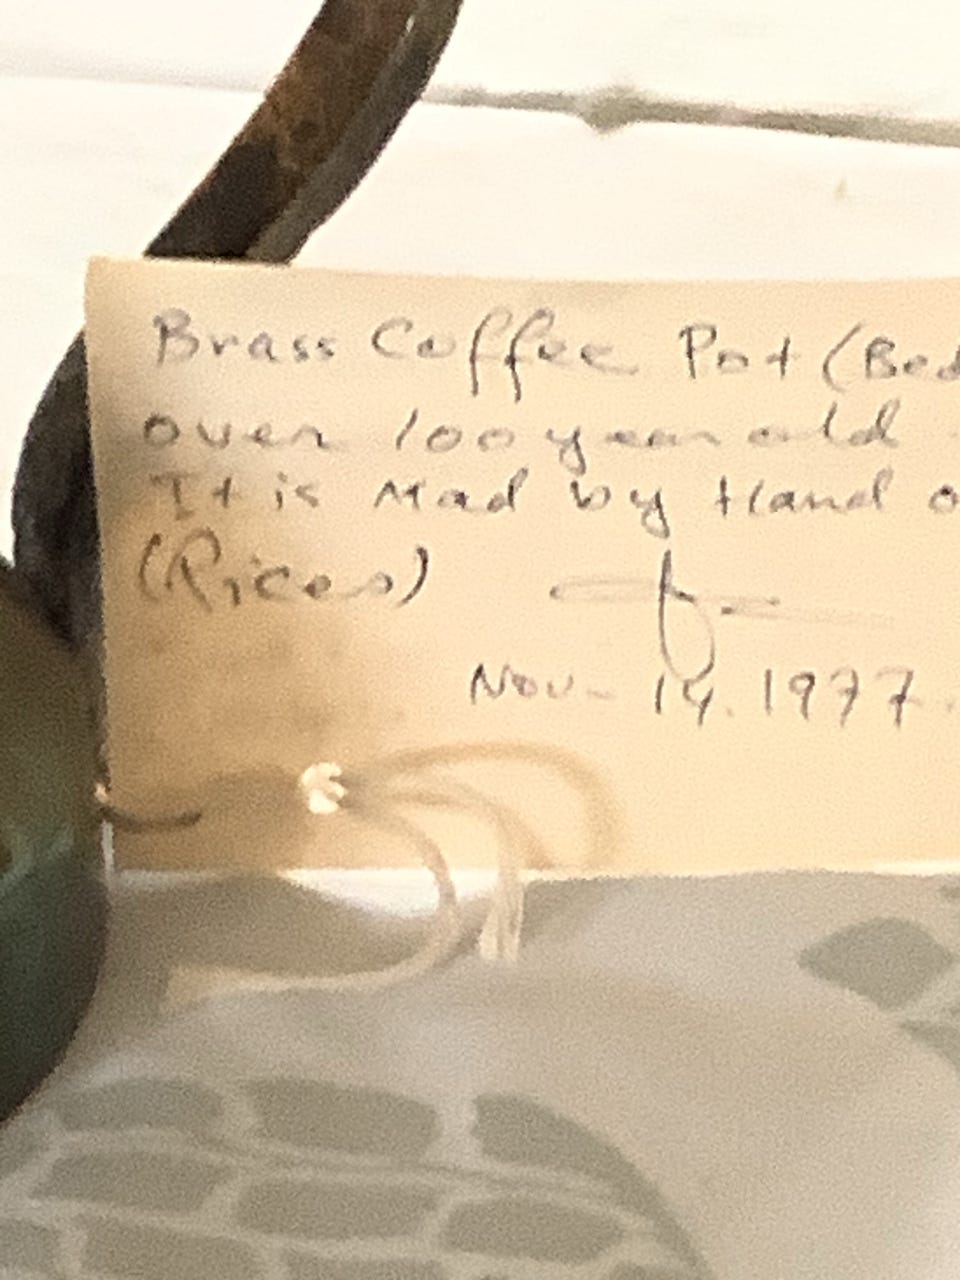 Brass Coffee Pot (Bed
over 100 year old
It is Mad by Hand o
(Pices)
Nov- 14. 1977.